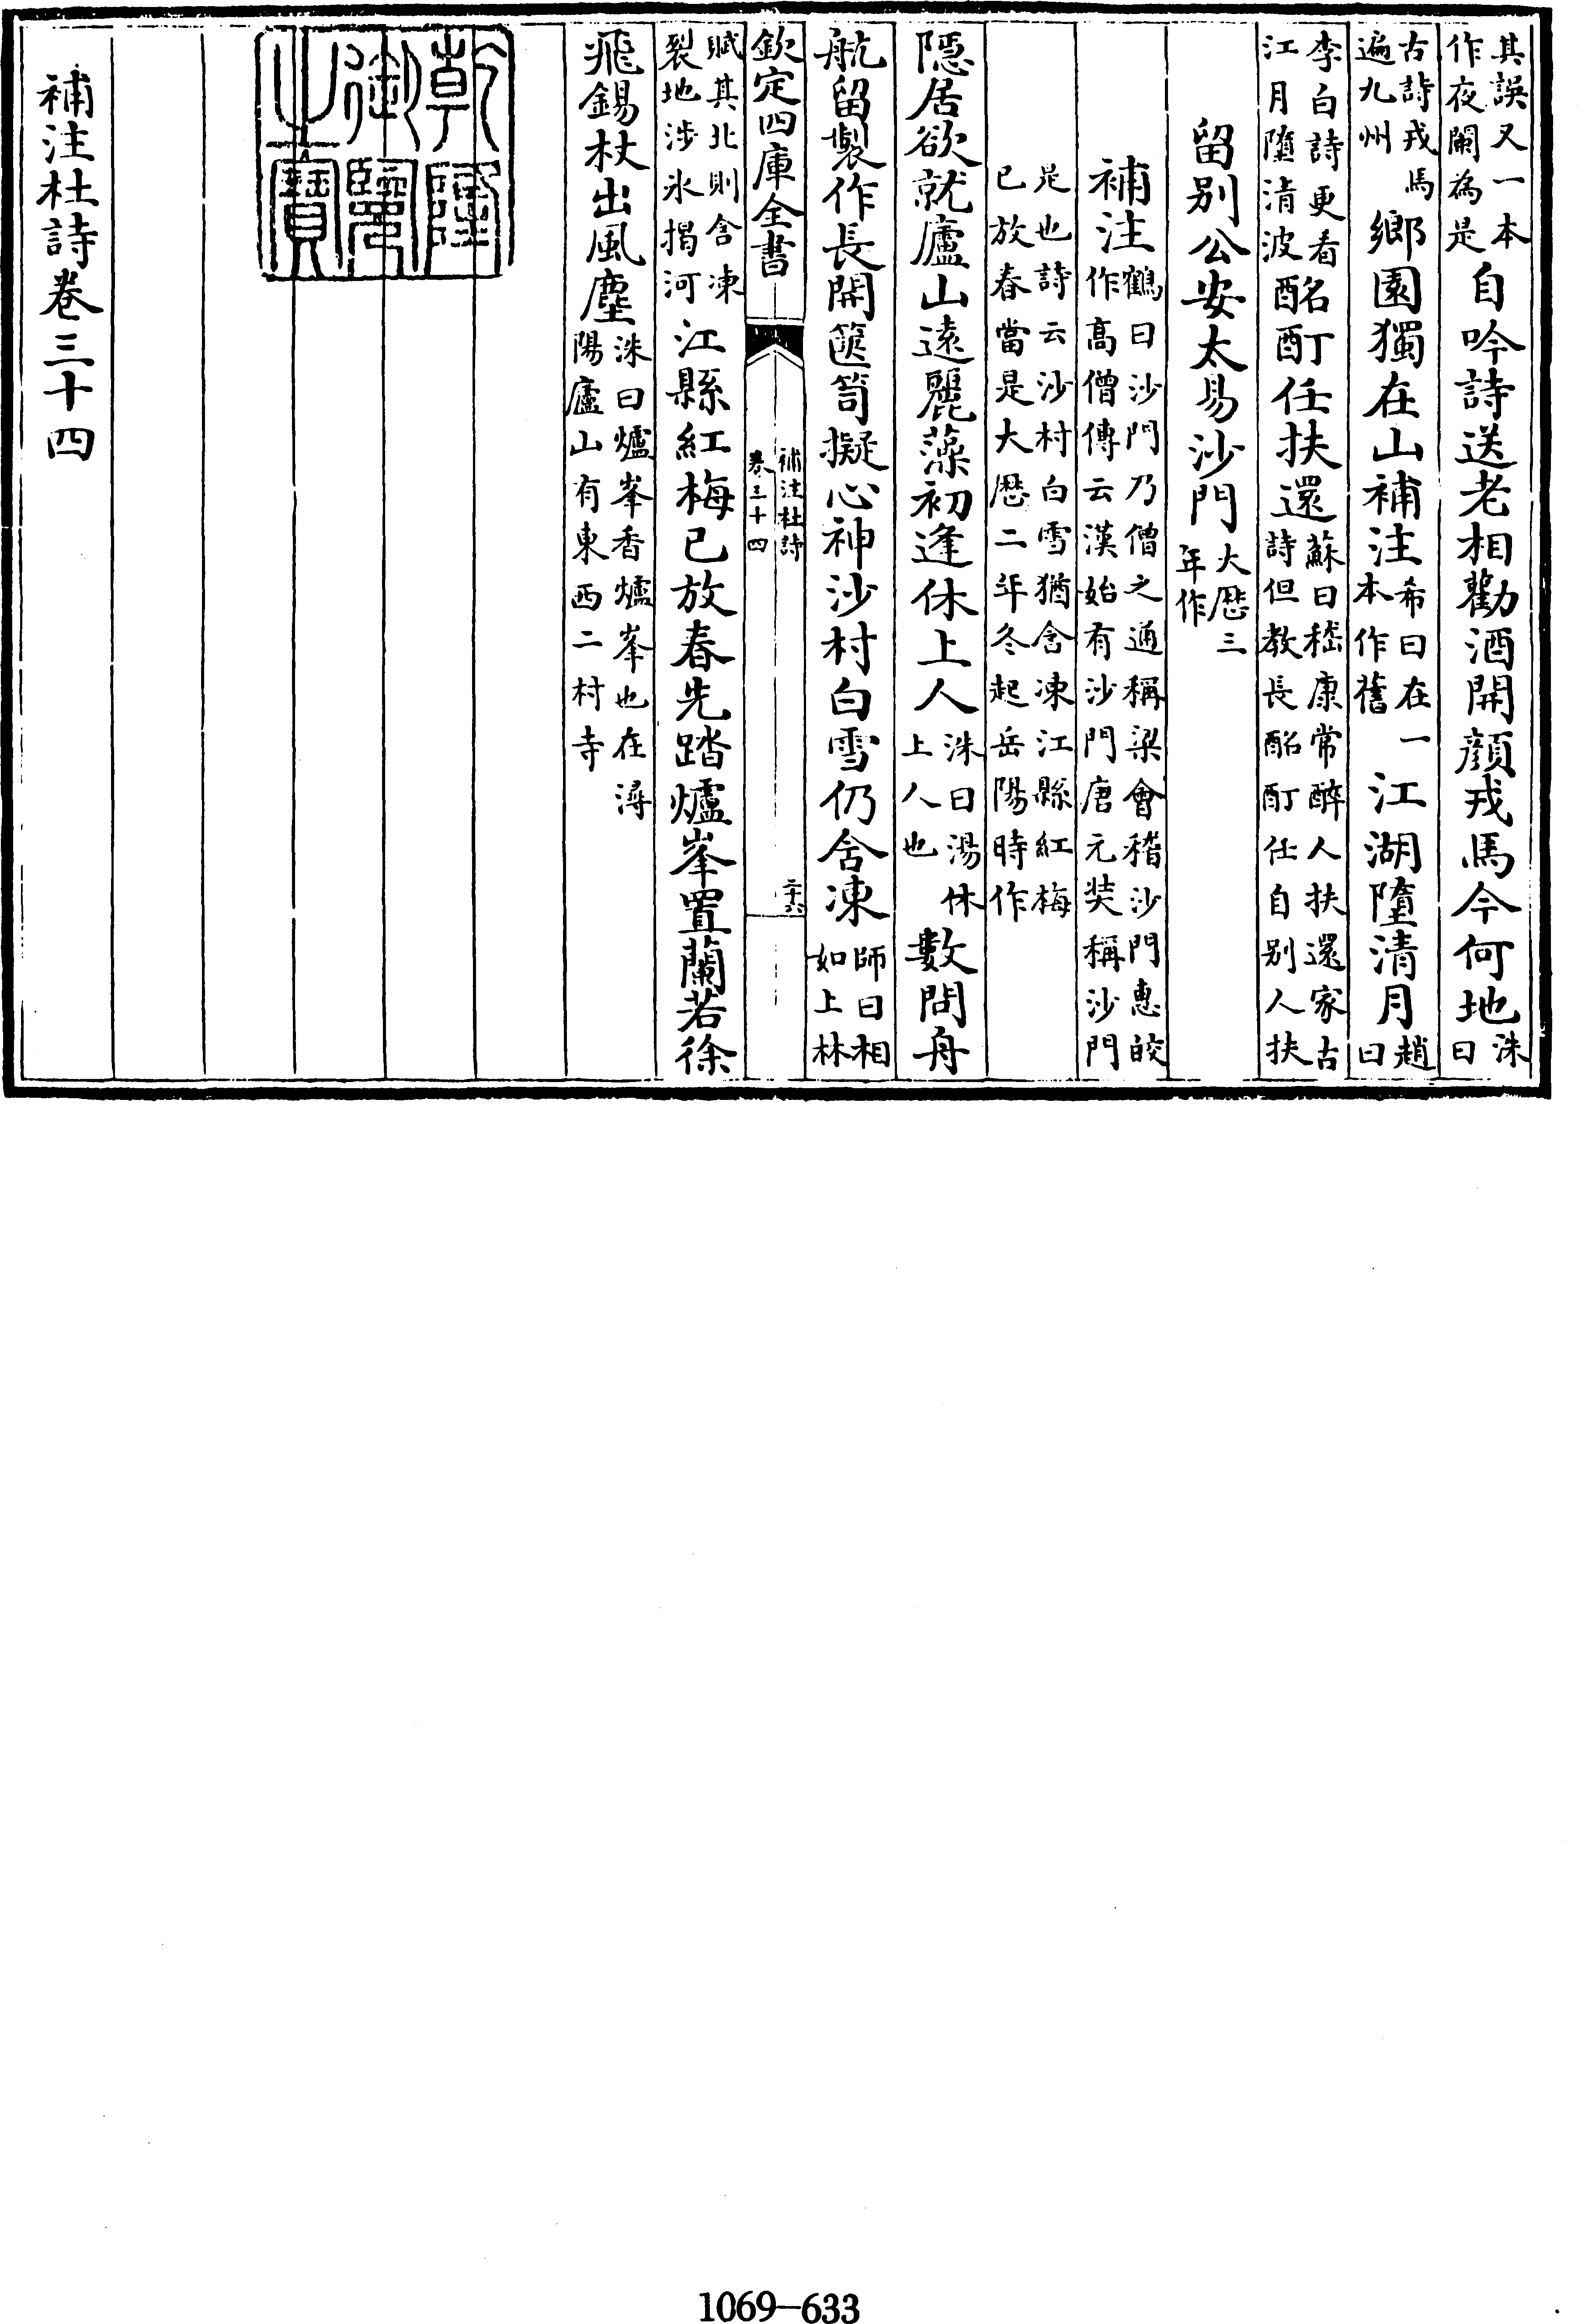 其誤又一本作夜闌為是自吟詩送老相勸酒開顔戎馬今何地洙曰
古詩戎馬遍九州鄉園獨在山補注希曰在一本作舊江湖墮清月趙曰
李白詩更看江月墮清波酩酊任扶還蘇曰嵇康常醉人扶還家古詩但教長酩酊任自别人扶
留别公安太易沙門大厯三年作
補注鶴曰沙門乃僧之通稱梁會稽沙門惠皎作高僧傳云漢始有沙門唐元奘稱沙門
是也詩云沙村白雪猶含凍江縣紅梅已放春當是大厯二年冬起岳陽時作
隱居欲就廬山遠麗藻初逢休上人洙曰湯休上人也數問舟
航留製作長開篋笥擬心神沙村白雪仍含凍師曰相如上林
欽定四庫全書
補注杜詩
卷三十四
二十六
賦其北則含凍裂地涉氷揭河江縣紅梅已放春先踏爐峯置蘭若徐
飛錫杖出風塵洙曰爐峯香爐峯也在潯陽廬山有東西二村寺
乾隆御覽之寶
補注杜詩卷三十四
1069—633